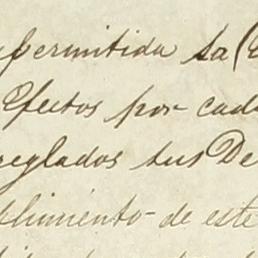 permitida la
Efectos por cada
reglados sus De
plimiento de este